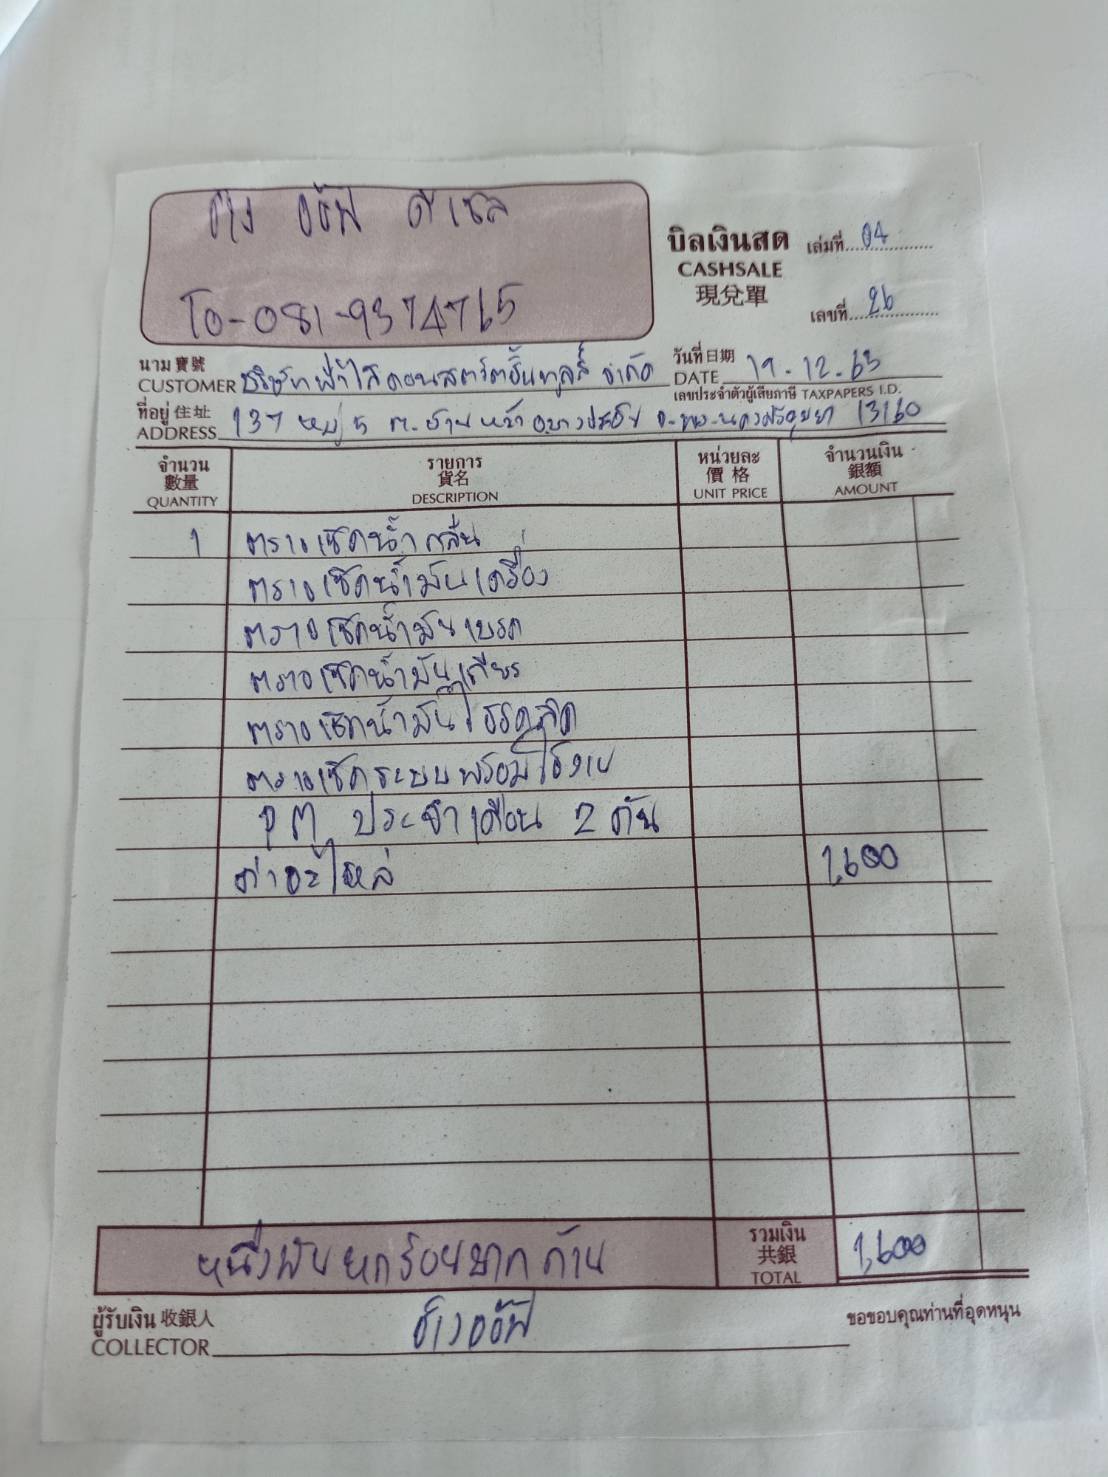 ช่าง ออ๊ฟ ดีเซล
โทร-081-9374765
บิลเงินสด
CASHSALE
現兌單
เล่มที่ 04
เลขที่ 26
นาม 寶號
CUSTOMER บริษัท ฟ้าใสคอนสตรัคชั่นทูลส์ จำกัด
วันที่ 日期
DATE 19.12.63
เลขประจำตัวผู้เสียภาษี TAXPAPERS I.D.
ที่อยู่ 住址
ADDRESS 137 หมู่ 5 ต.บ้านหว้า อ.บางปะอิน จ.พระนครศรีอยุธยา 13160
จำนวน 數量 QUANTITY
รายการ 貨名 DESCRIPTION
หน่วยละ 價格 UNIT PRICE
จำนวนเงิน 銀額 AMOUNT
1 ตราจเช็คน้ำกลั่น
ตราจเช็คน้ำมันเครื่อง
ตราจเช็คน้ำมันเบรค
ตราจเช็คน้ำมันเกียร
ตราจเช็คน้ำมันไฮรอลิค
ตราจเช็คระบบพร้อมใช้งาน
PM ประจำเดือน 2 คัน
ค่าอะไหล่ 1,600
หนึ่งพันหกร้อยบาทถ้วน
รวมเงิน 共銀 TOTAL 1,600
ผู้รับเงิน 收銀人
COLLECTOR ช่างออ๊ฟ
ขอขอบคุณท่านที่อุดหนุน